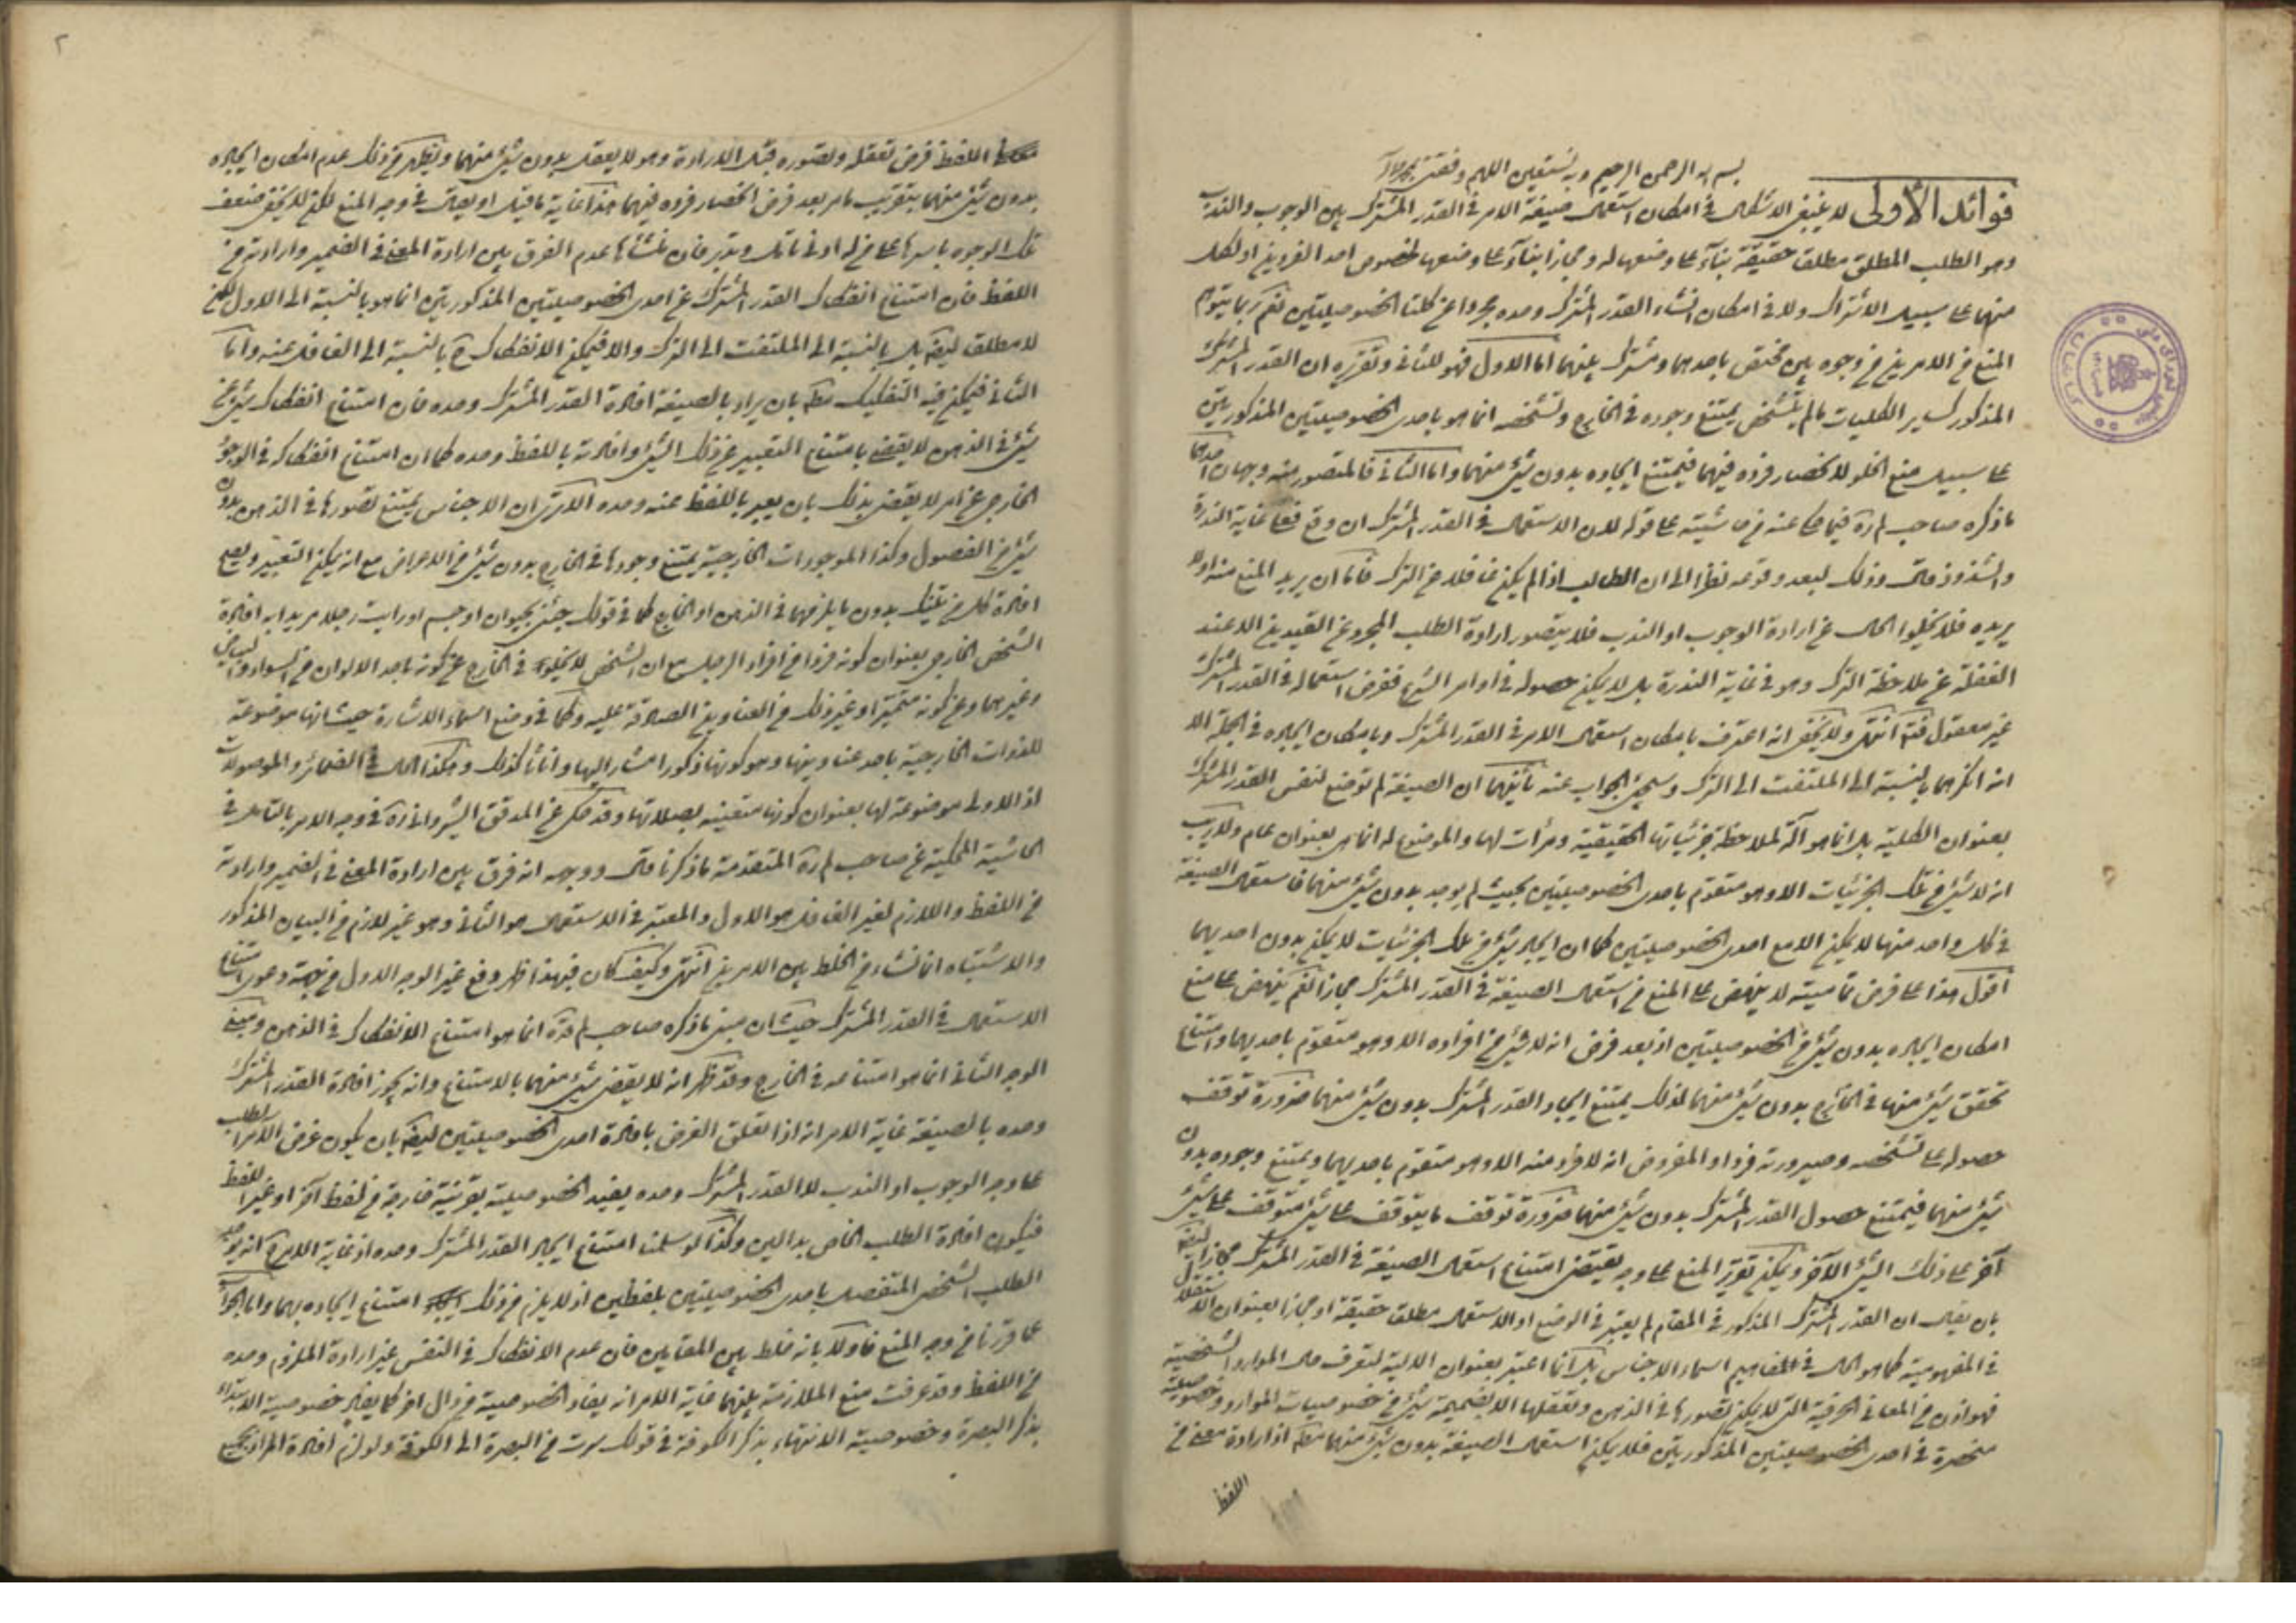 بسم الله الرحمن الرحيم وبه نستعين اللهم وفقني بمحمد وآله
فوائد الأولى لا ينبغي الاشكال في امكان استعمال صيغة الامر في القدر المشترك بين الوجوب والندب
وهو الطلب المطلق مطلقا حقيقة بناء على وضعها له ومجازا بناء على وضعها لخصوص احد الفردين او لكل
منهما على سبيل الاشتراك ولا في امكان انشاء القدر المشترك وحده مجردا عن كلتا الخصوصيتين نعم ربما يتوهم
المنع في الامرين من وجوه بين مختص باحدهما ومشترك بينهما اما الاول فهو للثاني وتقريره ان القدر المشترك
المذكور كساير الكليات ما لم يتشخص يمتنع وجوده في الخارج وتشخصه انما هو باحدى الخصوصيتين المذكورتين
على سبيل منع الخلو لانحصار فرده فيهما فيمتنع ايجاده بدون شيء منهما واما الثاني فالمتصور منه وجهان احدهما
ما ذكره صاحب لم ره فيما حكي عنه في حاشيته على قوله لان الاستعمال في القدر المشترك ان وقع فعلى غاية الندرة
والشذوذ قال وذلك لبعد وقوعه نظرا الى ان الطالب اذا لم يكن غافلا عن الترك فاما ان يريد المنع منه او لا
يريده فلا يخلوا الحال عن ارادة الوجوب او الندب فلا يتصور ارادة الطلب المجرد عن القيدين الا عند
الغفلة عن ملاحظة الترك وهو في غاية الندرة بل لا يمكن حصوله في اوامر الشرع ففرض استعماله في القدر المشترك
غير معقول فتم انتهى ولا يخفى انه اعترف بامكان استعمال الامر في القدر المشترك وبامكان ايجاده في الجملة الا
انه انكرهما بالنسبة الى الملتفت الى الترك وسيجيء الجواب عنه ثانيهما ان الصيغة لم توضع لنفس القدر المشترك
بعنوان الكلية بل انما هو آلة لملاحظة جزئياتها الحقيقية ومرآت لها والموضوع له انما هي بعنوان عام ولا ريب
انه لا شيء من تلك الجزئيات الا وهو متقوم باحدى الخصوصيتين بحيث لم يوجد بدون شيء منهما فاستعمال الصيغة
في كل واحد منها لا يمكن الا مع احدى الخصوصيتين كما ان ايجاد شيء من تلك الجزئيات لا يمكن بدون احديهما
اقول هذا على فرض تماميته لا ينهض على المنع من استعمال الصيغة في القدر المشترك مجازا نعم ينهض على منع
امكان ايجاده بدون شيء من الخصوصيتين اذ بعد فرض انه لا شيء من افراده الا وهو متقوم باحديهما وامتناع
تحقق شيء منها في الخارج بدون شيء منهما لذلك يمتنع ايجاد القدر المشترك بدون شيء منهما ضرورة توقف
حصوله على تشخصه وصيرورته فردا والمفروض انه لا فرد منه الا وهو متقوم باحديهما ويمتنع وجوده بدون
شيء منهما فيمتنع حصول القدر المشترك بدون شيء منهما ضرورة توقف ما يتوقف على شيء متوقف على شيء
آخر على ذلك الشيء الآخر ويمكن تقرير المنع على وجه يقتضي امتناع استعمال الصيغة في القدر المشترك مجازا ايضا
بان يقال ان القدر المشترك المذكور في المقام لم يعتبر في الوضع او الاستعمال مطلقا حقيقة او مجازا بعنوان الاستقلال
في المفهومية كما هو الحال في مفاهيم اسماء الاجناس بل انما اعتبر بعنوان الالية لتعرف حال الموارد الشخصية
فهو اذن من المعاني الحرفية التي لا يمكن تصورها في الذهن وتعقلها الا بضميمة شيء من خصوصيات الموارد وخصوصيته
منحصرة في احدى الخصوصيتين المذكورتين فلا يمكن استعمال الصيغة بدون شيء منهما مط اذ ارادة معنى من
اللفظ
٢
اللفظ فرض تعقله وتصوره قبل الارادة وهو لا يعقل بدون شيء منهما ويظهر من ذلك عدم امكان ايجاده
بدون شيء منهما بتقريب ما مر بعد فرض انحصار فرده فيهما هذا غاية ما قيل او يقال في وجه المنع لكن لا يخفى ضعف
تلك الوجوه باسرها على من له ادنى تامل وتدبر فان منشأها عدم الفرق بين ارادة المعنى في الضمير وارادته من
اللفظ فان امتناع انفكاك القدر المشترك عن احدى الخصوصيتين المذكورتين انما هو بالنسبة الى الاول لكن
لا مطلقا ايضا بل بالنسبة الى الملتفت الى الترك والا فيمكن الانفكاك ح بالنسبة الى الغافل عنه واما
الثاني فيمكن فيه التفكيك مط بان يراد بالصيغة افادة القدر المشترك وحده فان امتناع انفكاك شيء عن
شيء في الذهن لا يقضي بامتناع التعبير عن ذلك الشيء وافادته باللفظ وحده كما ان امتناع انفكاكه في الوجود
الخارجي عن امر لا يقضي بذلك بان يعبر باللفظ عنه وحده الا ترى ان الاجناس يمتنع تصورها في الذهن بدون
شيء من الفصول وكذا الموجودات الخارجية يمتنع وجودها في الخارج بدون شيء من الاعراض مع انه يمكن التعبير ويصح
افادة كل من تينك بدون ما يلزمهما في الذهن او الخارج كما في قولك جئني بحيوان او جسم او رايت رجلا مريدا به افادة
الشخص الخارجي بعنوان كونه فردا من افراد الرجل مع ان الشخص لا يخلو في الخارج عن كونه باحد الالوان من السواد والبياض
وغيرهما وعن كونه متحيزا وغير ذلك من العناوين الصادقة عليه وكما في وضع اسماء الاشارة حيث انها موضوعة
للذوات الخارجية باحد عناوينها وهو كونها ذكورا مشارا اليها واناثا كذلك وهكذا الحال في الضمائر والموصولات
اذ الاولى موضوعة لها بعنوان كونها متعينة بصلاتها وقد حكي عن المدقق الشيرواني ره في وجه الامر بالتامل في
الحاشية المحكية عن صاحب لم ره المتقدمة ما ذكرنا قال ووجهه انه فرق بين ارادة المعنى في الضمير وارادته
من اللفظ واللازم لغير الغافل هو الاول والمعتبر في الاستعمال هو الثاني وهو غير لازم من البيان المذكور
والاشتباه انما نشاء من الخلط بين الامرين انتهى وكيف كان فبهذا ظهر دفع غير الوجه الاول من جهة دعوى امتناع
الاستعمال في القدر المشترك حيث ان مبنى ما ذكره صاحب لم قده انما هو امتناع الانفكاك في الذهن ومبنى
الوجه الثاني انما هو امتناعه في الخارج وقد ظهر انه لا يقضي شيء منهما بالامتناع وانه يجوز افادة القدر المشترك
وحده بالصيغة غاية الامر انه اذا تعلق الغرض بافادة احدى الخصوصيتين ايضا بان يكون غرض الآمر الطلب
على وجه الوجوب او الندب لا القدر المشترك وحده يفيد الخصوصية بقرينة خارجة من لفظ آخر او غير اللفظ
فيكون افادة الطلب الخاص بدالين وكذا لو سلمنا امتناع ايجاد القدر المشترك وحده اذ غاية الامر ح انه يوجد
الطلب الشخصي المتفصل باحدى الخصوصيتين بلفظين اذ لا يلزم من ذلك امتناع ايجاده بهما واما الجواب
عما قررنا من وجه المنع فاولا بانه خلط بين المقامين فان عدم الانفكاك في النفس غير ارادة الملزوم وحده
من اللفظ وقد عرفت منع الملازمة بينهما غاية الامر انه يفاد الخصوصية من دال آخر كما يفاد خصوصية الابتداء
بذكر البصرة وخصوصية الانتهاء بذكر الكوفة في قولك سرت من البصرة الى الكوفة ولو لزم افادة المراد بجميع